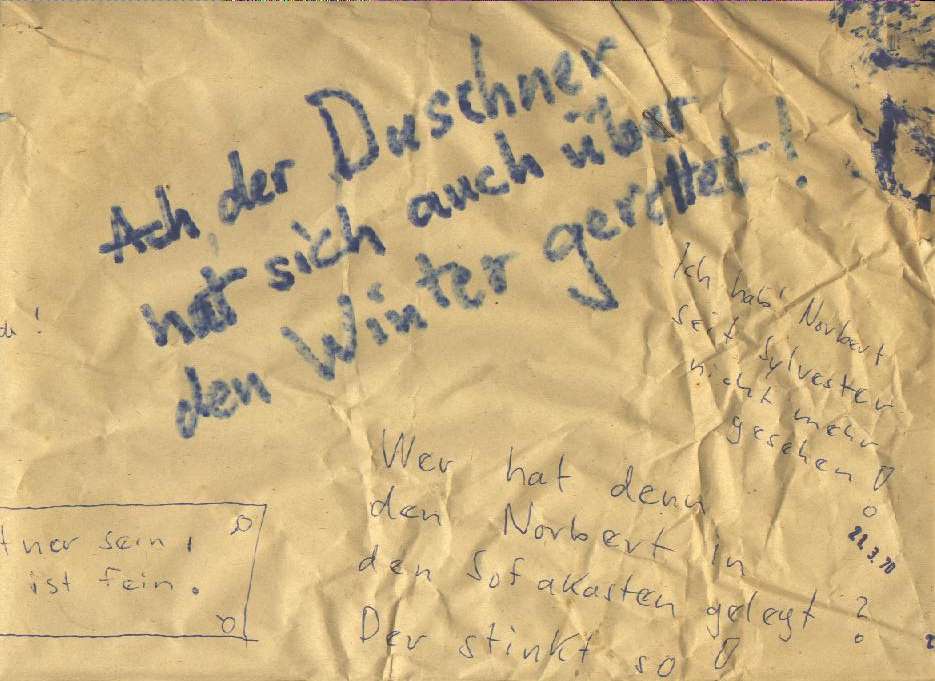 Ach, der Duschner
hat sich auch über
den Winter gerettet!
Ich hab' Norbert
seit Sylvester
nicht mehr
gesehen!
22.3.70
Wer hat denn
den Norbert in
den Sofakasten gelegt?
Der stinkt so!
tner sein,
ist fein.